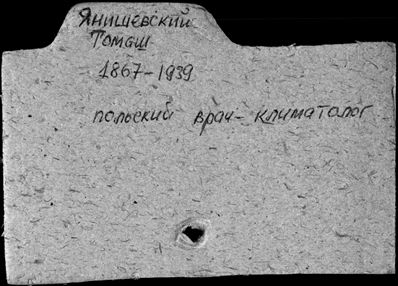 Янишевский
Томаш
1867-1939
польский врач- климатолог